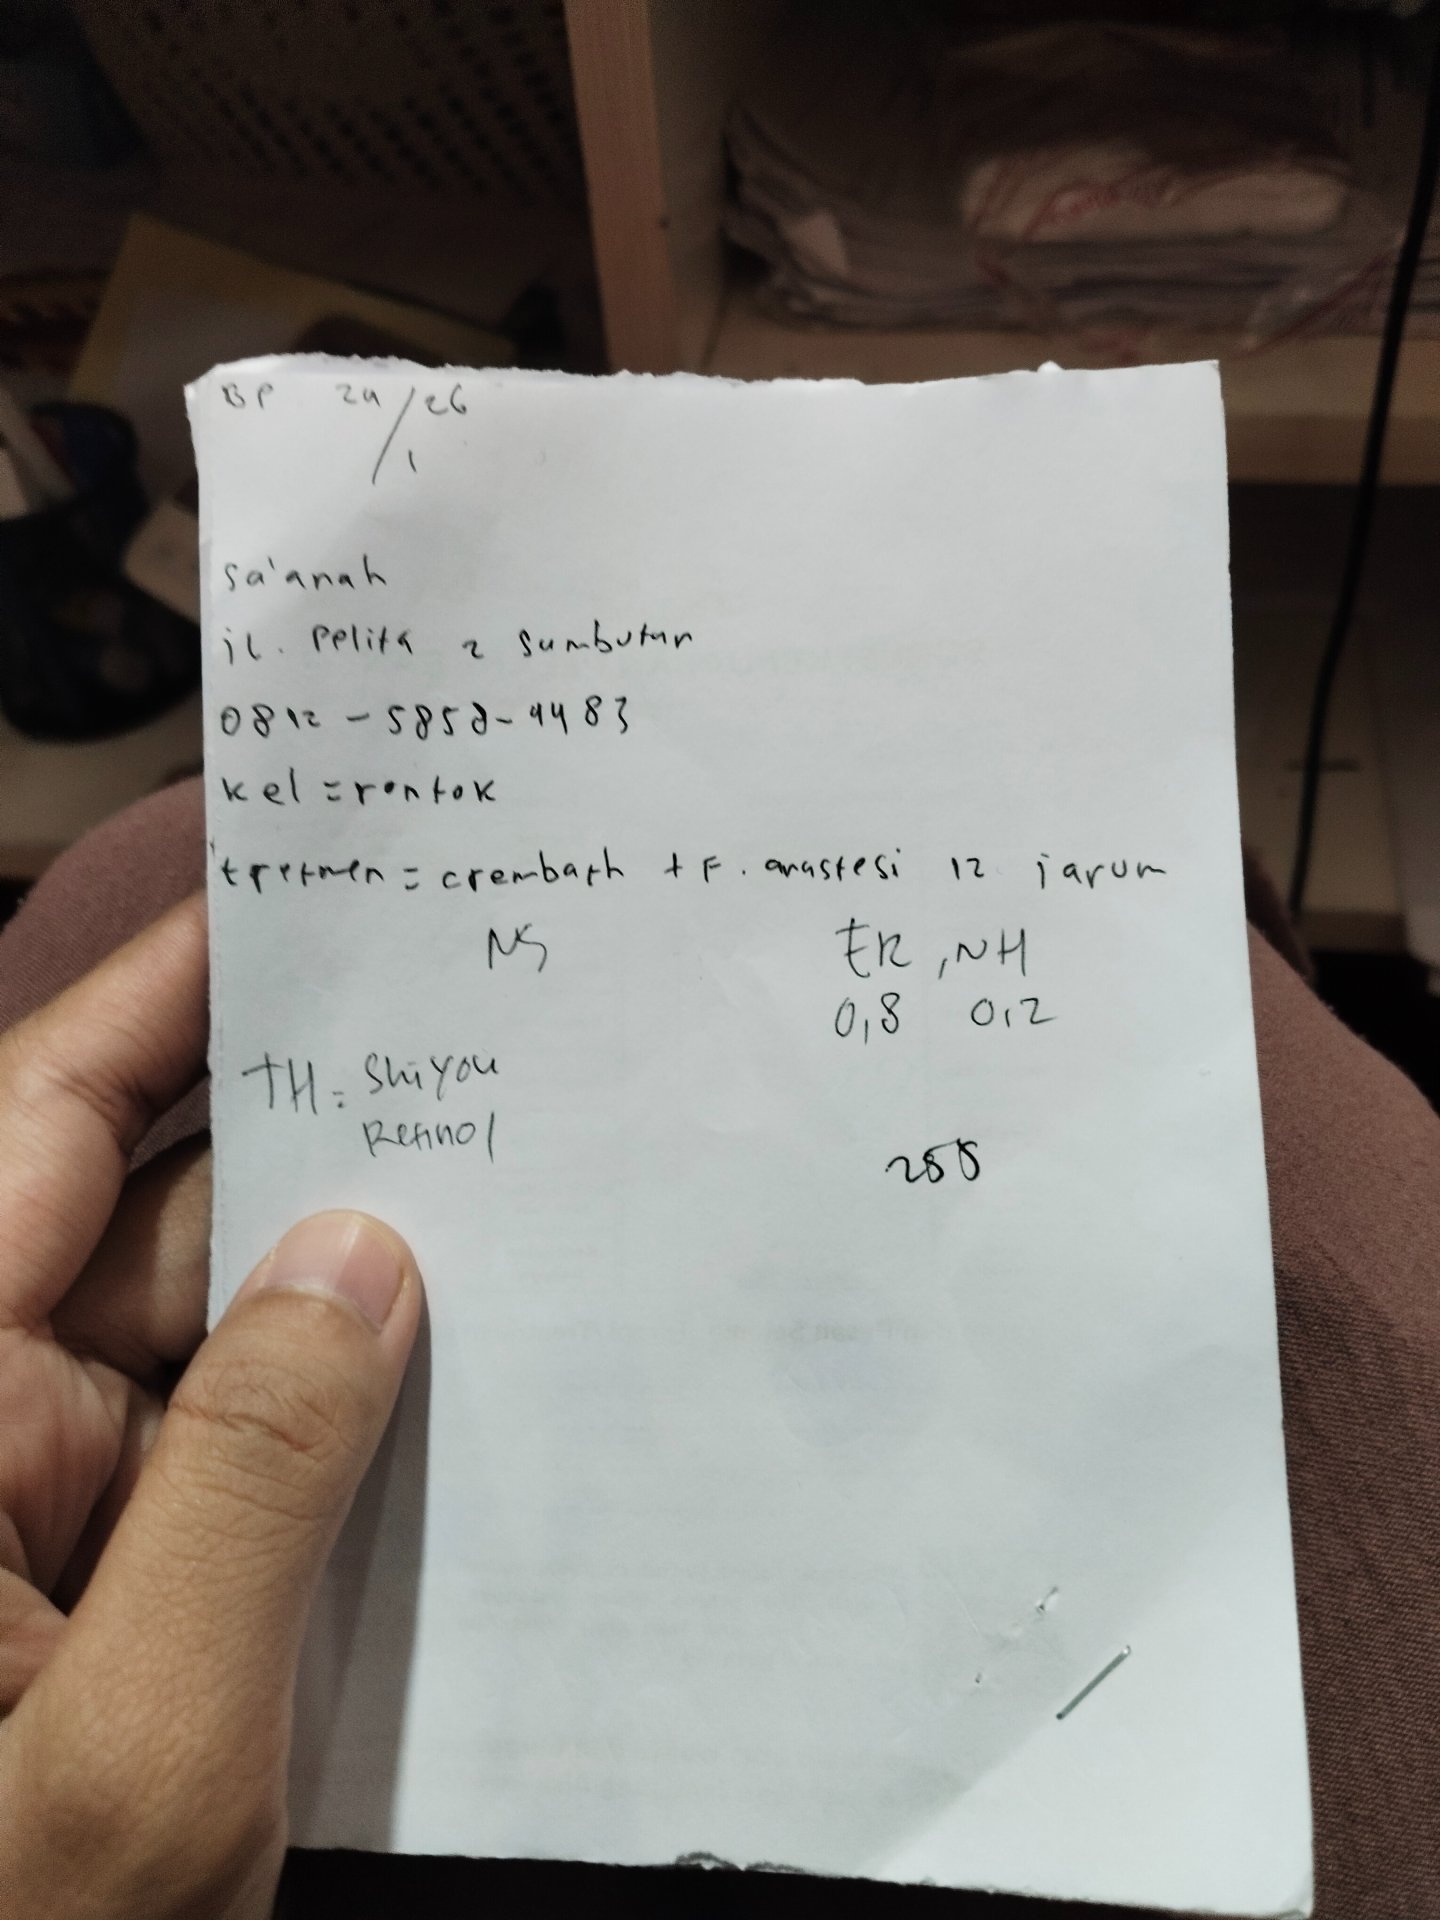 BP 24/26
1
sa'anah
jl. Pelita 2 sumbutan
0812-5858-4483
kel = rontok
tretmen = crembath + F. anastesi 12 jarum
NS ER, NH
0,8 0,2
TH = Shiyou
Retinol
288